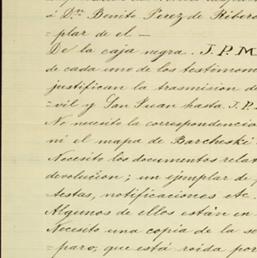 á Dn. Benito Perez de Ribero
=plar de el —
De la caja negra. J.P.M
de cada uno de los testimon
justifican la trasmision de
=vil y San Juan hasta J.P.
No necesito la correspondencia
ni el mapa de Barcheski
Necesito los documentos relat
devolucion; un ejemplar de p
testas, notificaciones etc. A
Algunos de ellos están en
Necesito una copia de la se
=paro; que está roida por